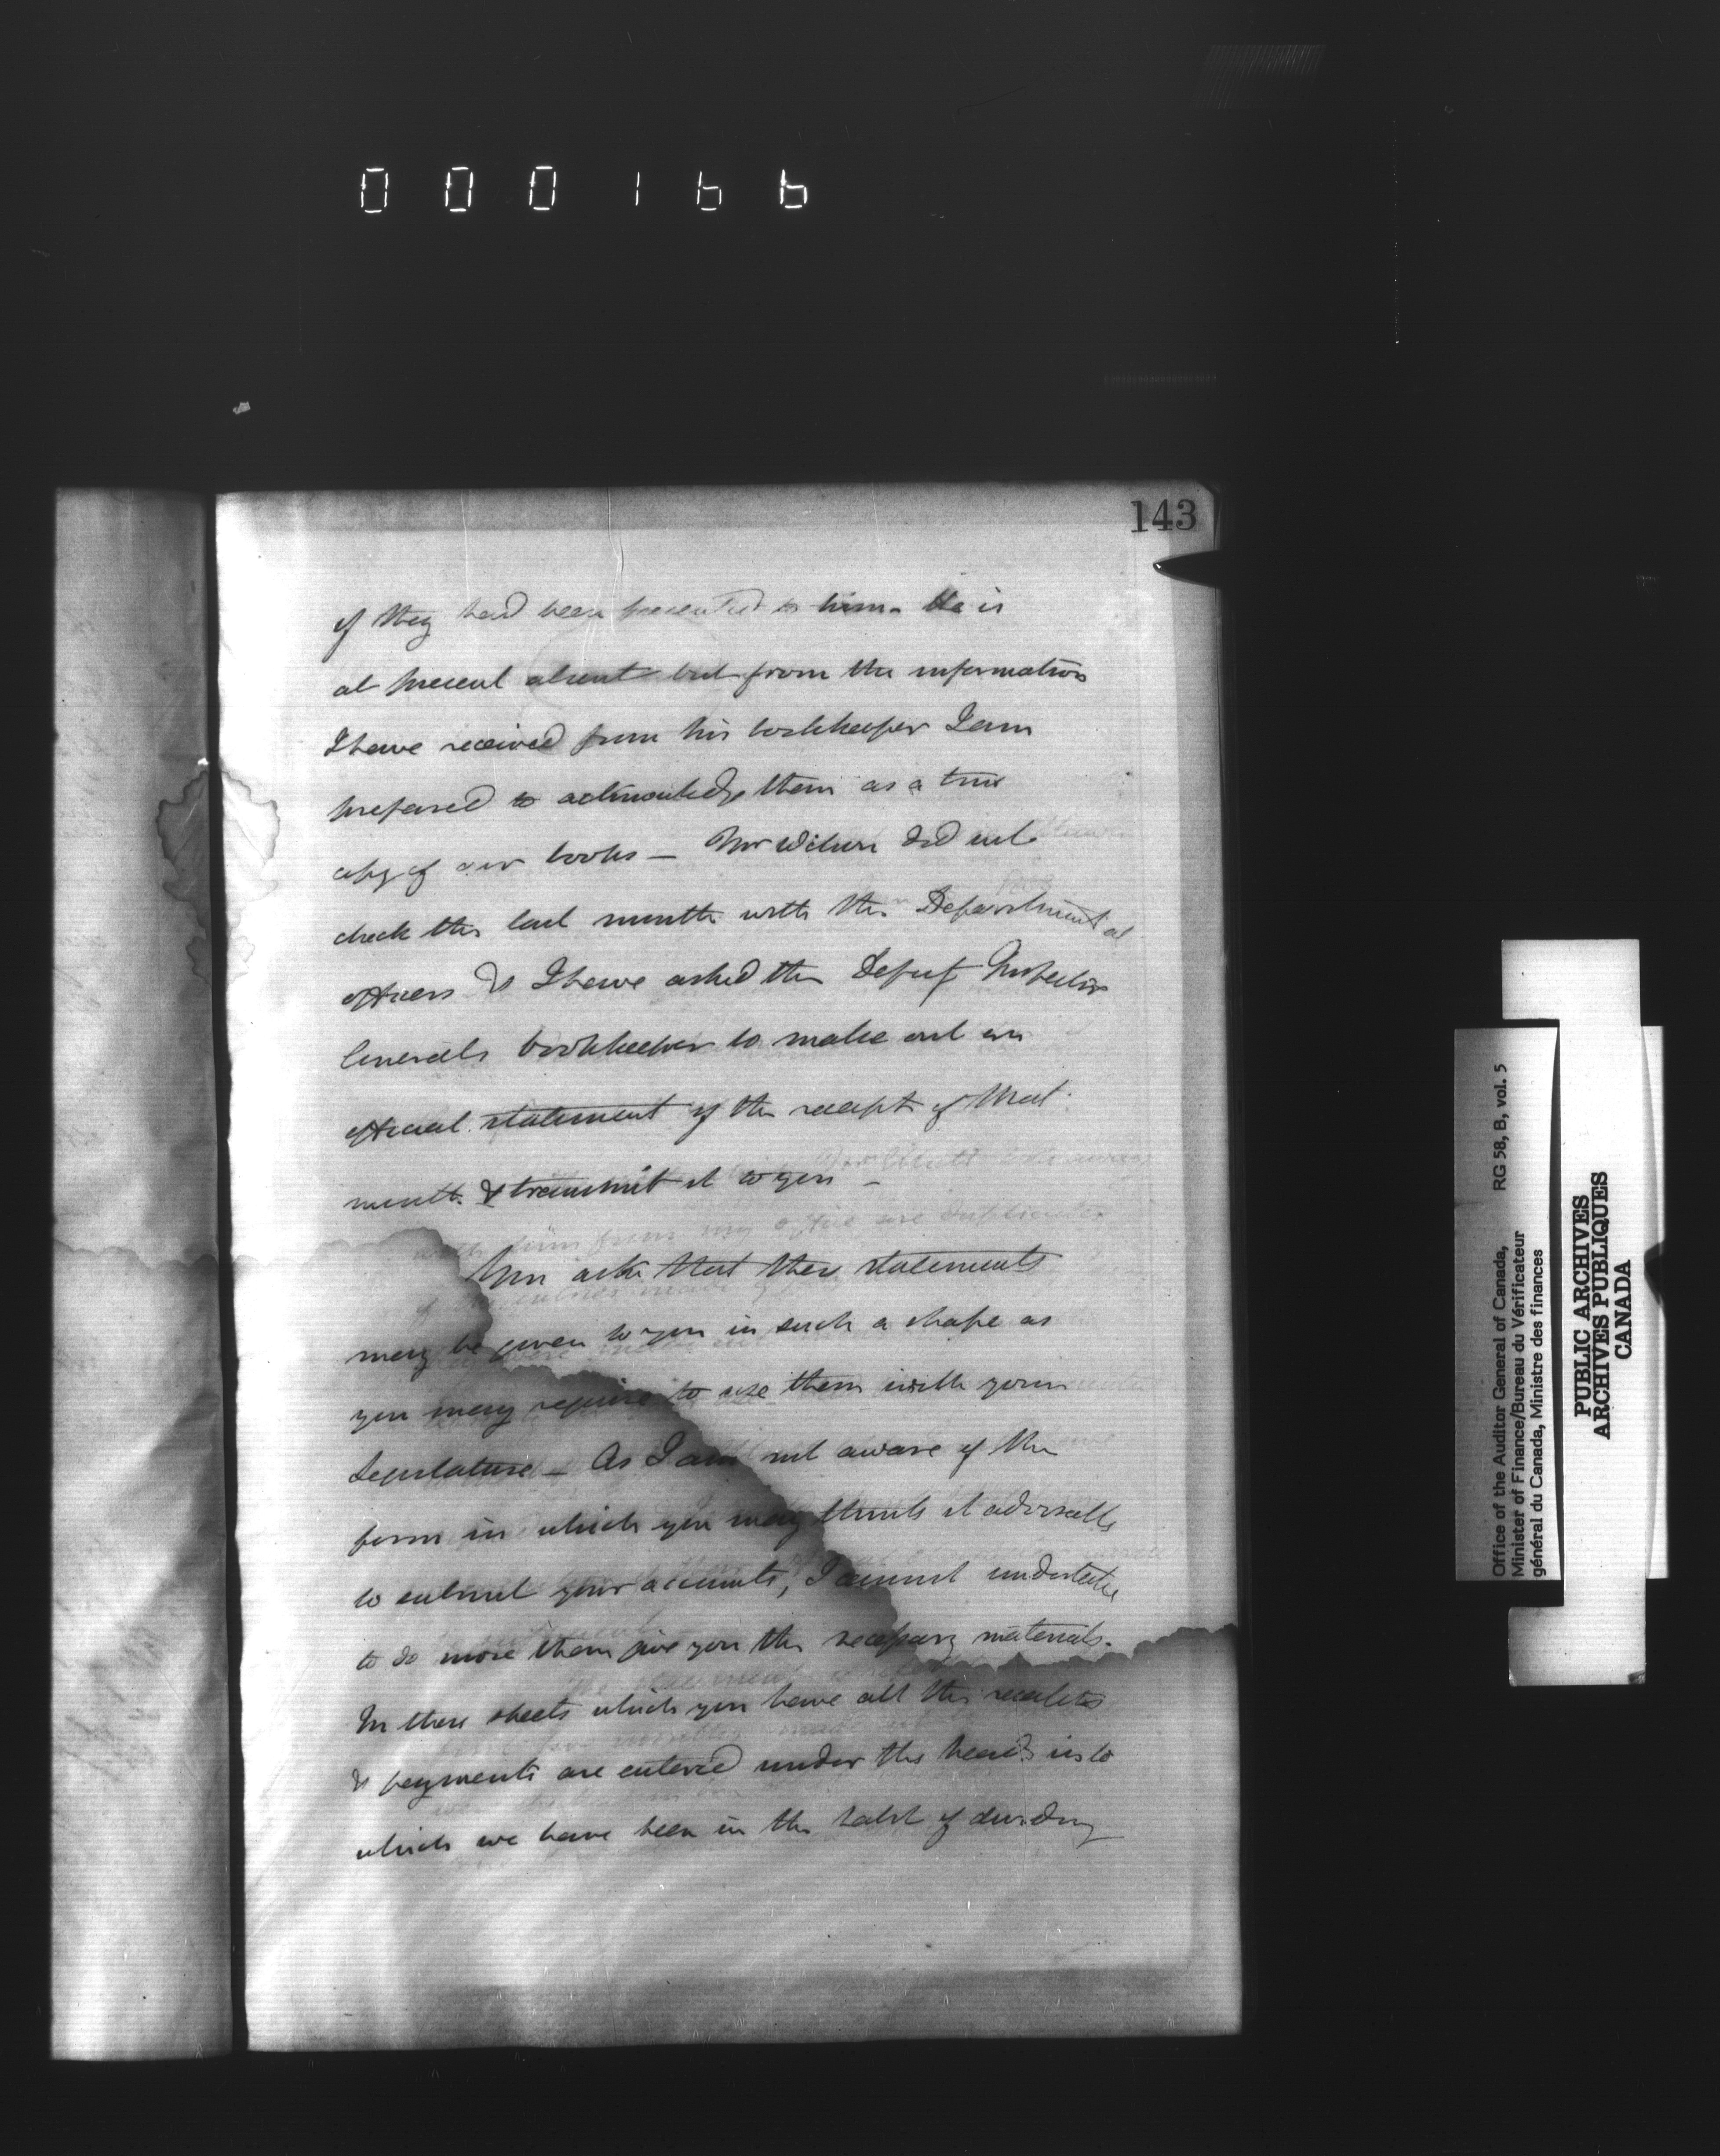 000166
143
if they had been presented to him. He is
at present absent but from the information
I have received from his bookkeeper I am
prepared to acknowledge them as a true
copy of our books — Mr Wilson did not
check the last month with the Departmental
officers & I have asked the Deputy Inspector
Generals bookkeeper to make out an
official statement of the receipts of that
month & transmit it to you —
You ask that these statements
may be given to you in such a shape as
you may require to use them with your
Legislature — As I am not aware of the
form in which you may think it advisable
to submit your accounts, I cannot undertake
to do more than give you the necessary materials.
In these sheets which you have all the receipts
& payments are entered under the heads into
which we have been in the habit of dividing
Office of the Auditor General of Canada, RG 58, B, vol. 5
Minister of Finance/Bureau du Vérificateur
général du Canada, Ministre des finances
PUBLIC ARCHIVES
ARCHIVES PUBLIQUES
CANADA